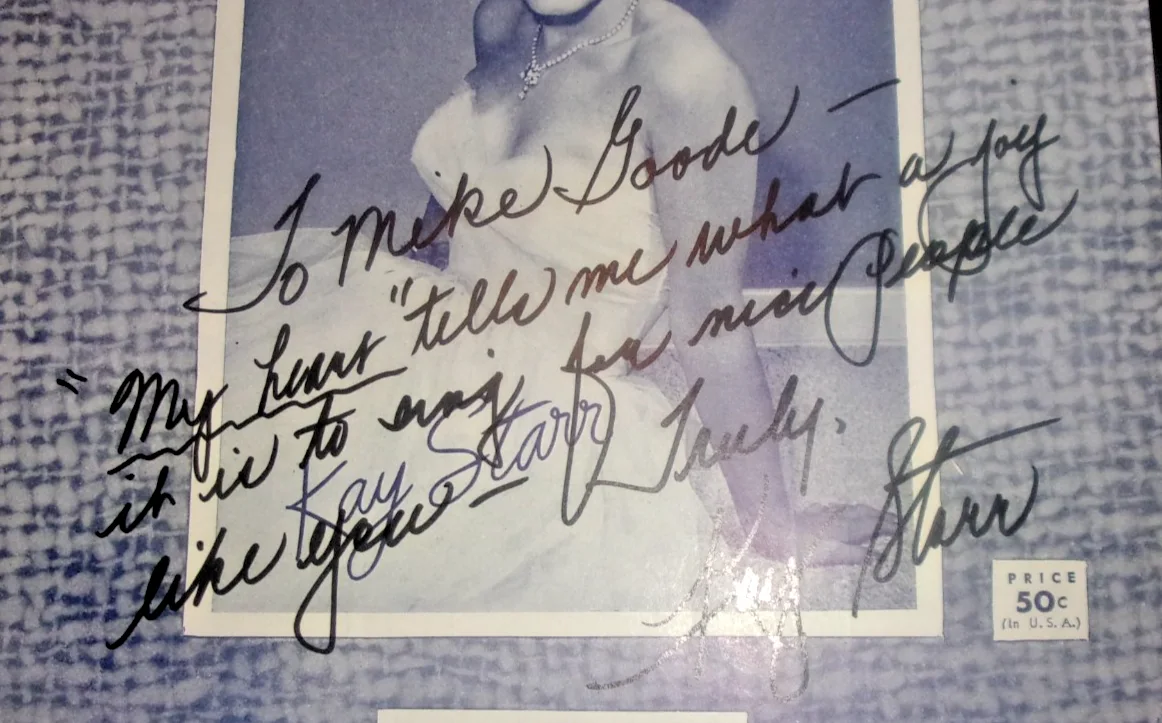 To Mike Goode –
"My heart" tells me what a joy
it is to sing for nice people
like you –
Truly.
Kay Starr
Kay Starr
PRICE
50c
(In U.S.A.)